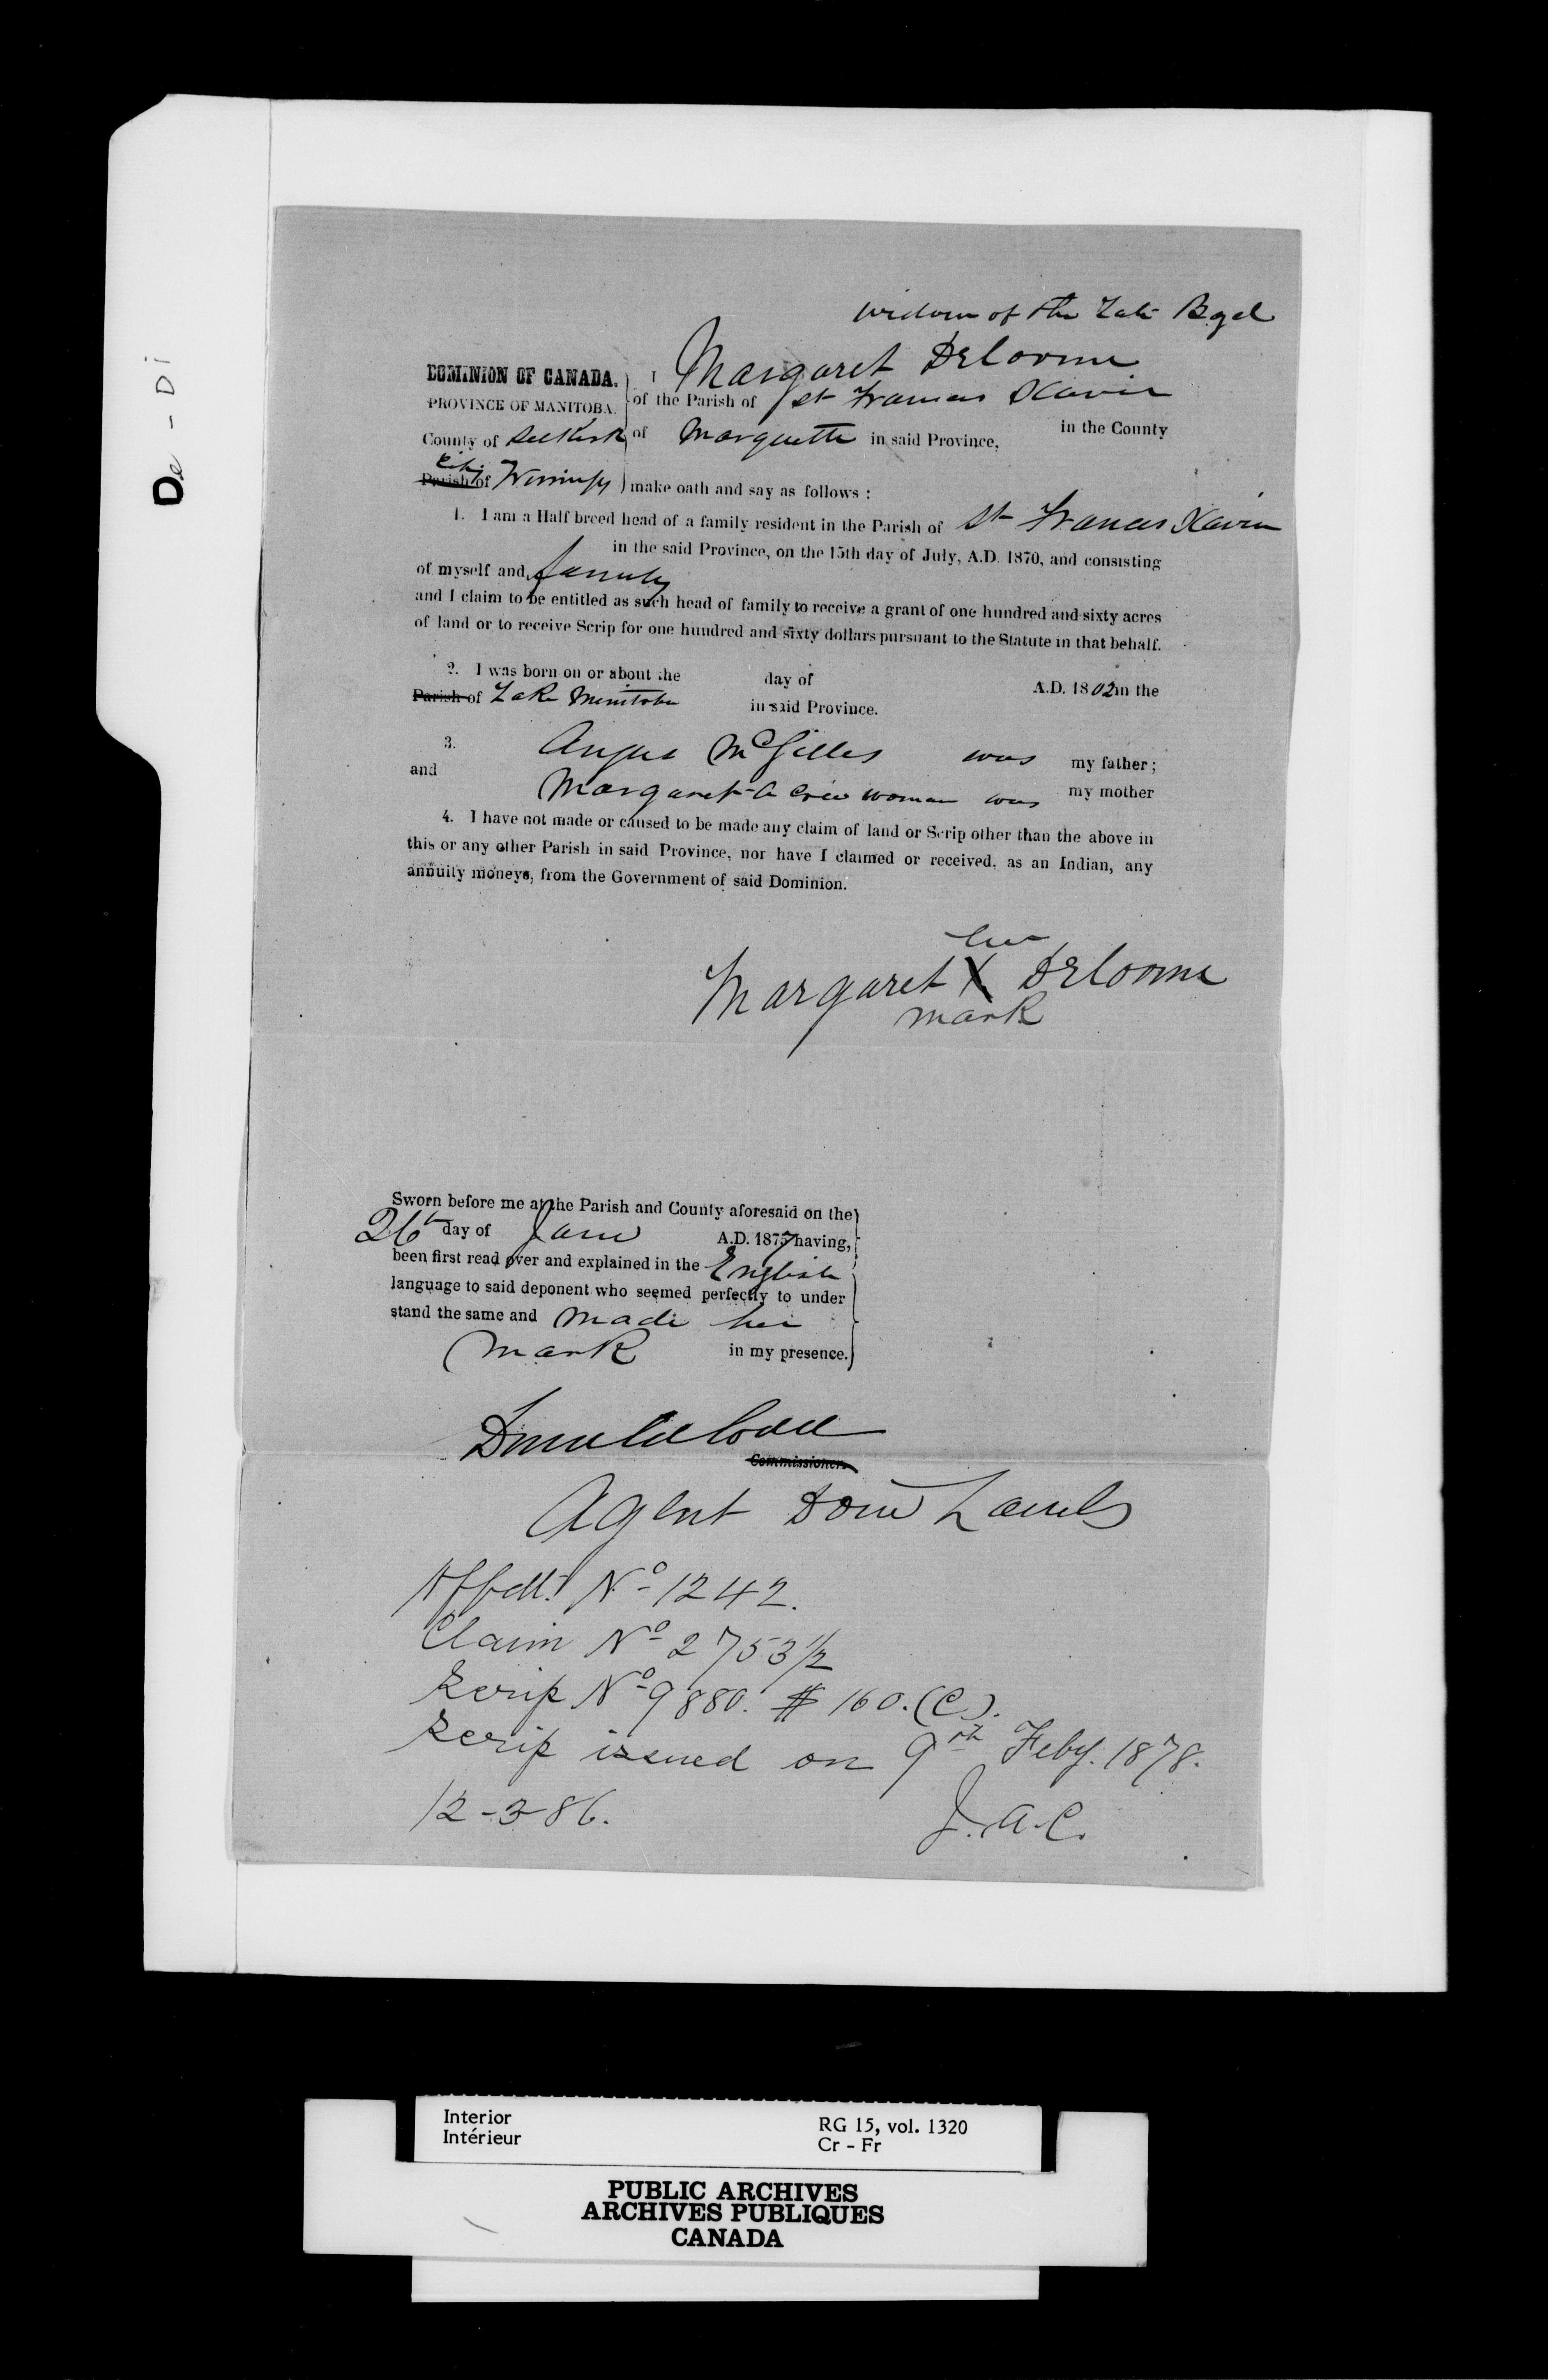 De - Di
widow of the late Bazil
DOMINION OF CANADA. I Margaret Delorme
PROVINCE OF MANITOBA. of the Parish of St Francois Xavier
County of Selkirk of Marquette in said Province, in the County
City Parish of Winnipeg make oath and say as follows :
1. I am a Half breed head of a family resident in the Parish of St Francois Xavier
in the said Province, on the 15th day of July, A.D. 1870, and consisting
of myself and family
and I claim to be entitled as such head of family to receive a grant of one hundred and sixty acres
of land or to receive Scrip for one hundred and sixty dollars pursuant to the Statute in that behalf.
2. I was born on or about the day of A.D. 1802 in the
Parish of Lake Manitoba in said Province.
3. Angus McGilles was my father ;
and Margaret a Cree woman was my mother
4. I have not made or caused to be made any claim of land or Scrip other than the above in
this or any other Parish in said Province, nor have I claimed or received, as an Indian, any
annuity moneys, from the Government of said Dominion.
her
Margaret X Delorme
mark
Sworn before me at the Parish and County aforesaid on the
26th day of June A.D. 1877 having,
been first read over and explained in the English
language to said deponent who seemed perfectly to under
stand the same and made her
mark in my presence.
Donald Codd
Commissioner.
Agent Dom Lands
Affdt. No 1242.
Claim No 2753 1/2
Scrip No 9880. $160. (C).
Scrip issued on 9th Feby. 1878.
12-3-86. J. A. C.
Interior RG 15, vol. 1320
Intérieur Cr - Fr
PUBLIC ARCHIVES
ARCHIVES PUBLIQUES
CANADA